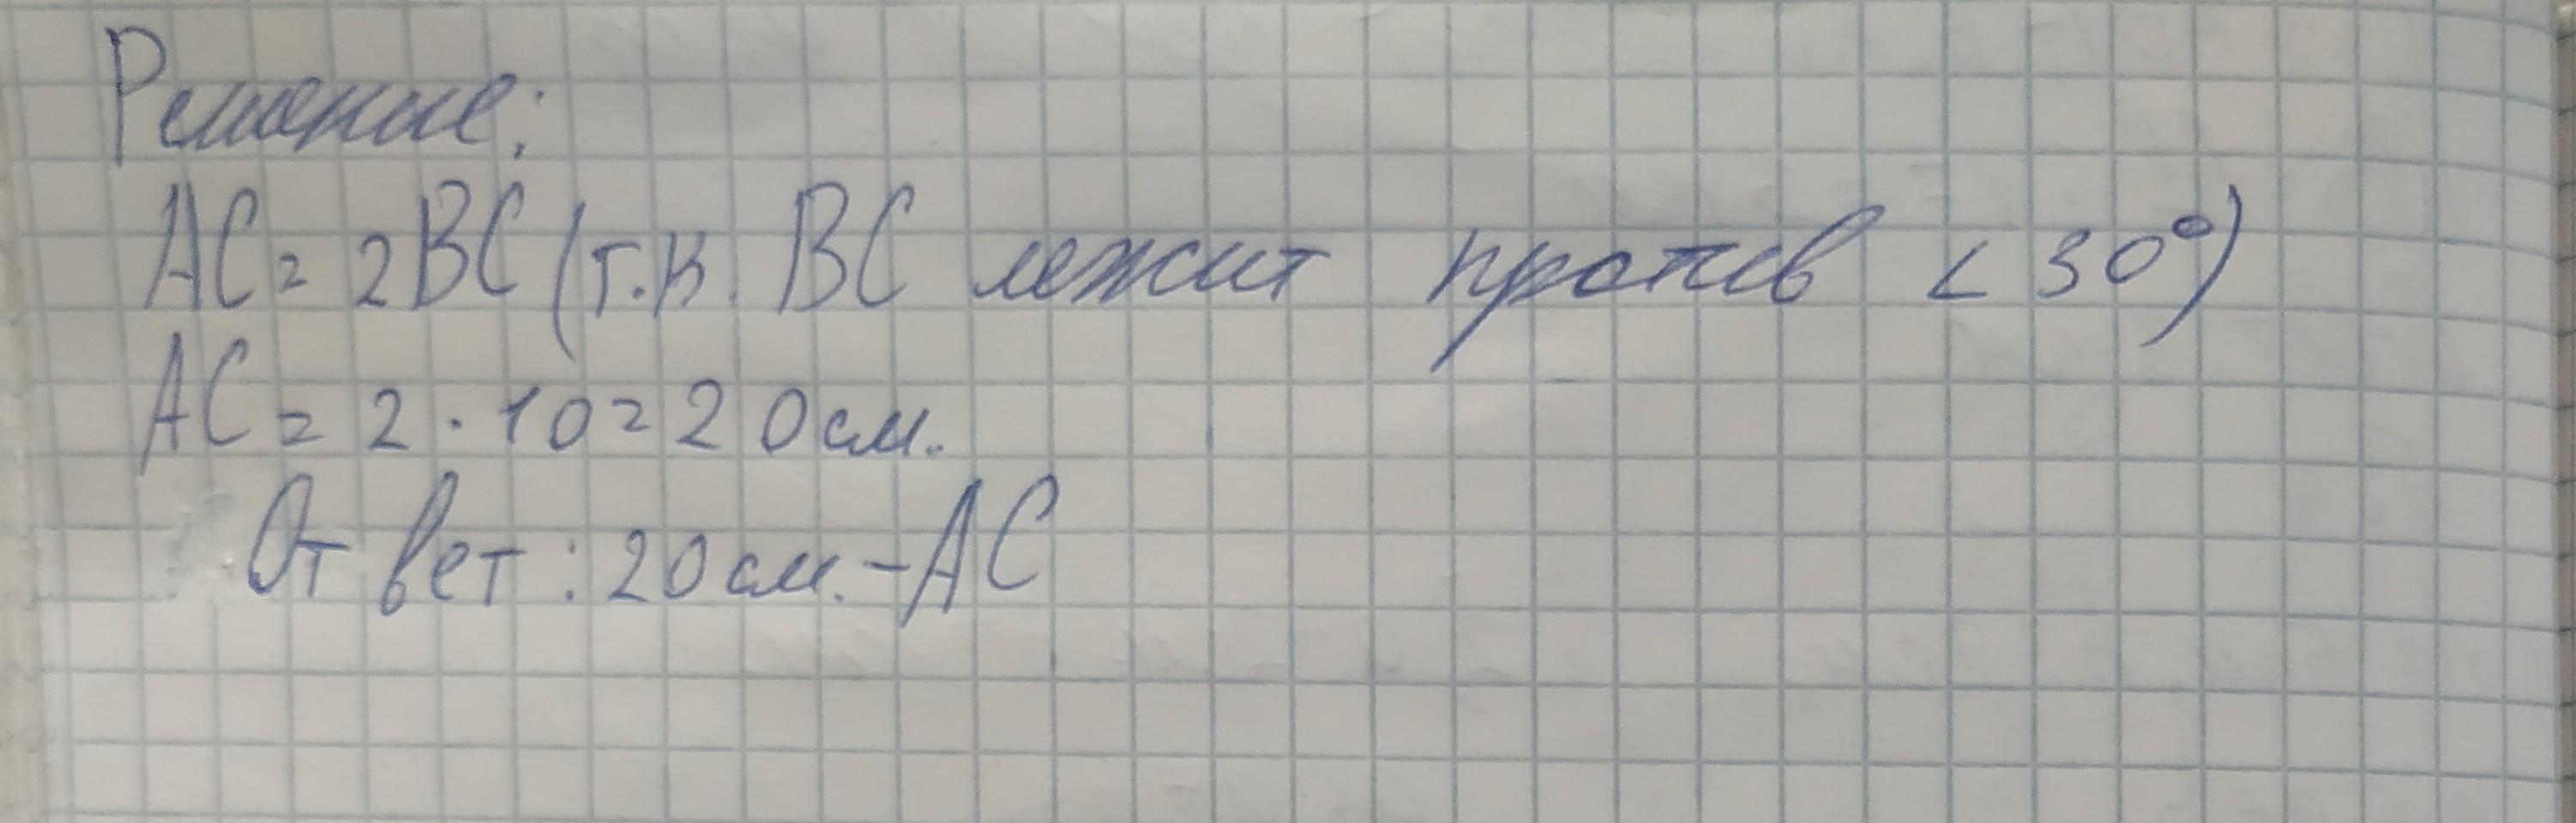 Решение:
AC = 2BC (т.к. BC лежит против < 30°)
AC = 2 · 10 = 20 см.
Ответ: 20 см. - AC